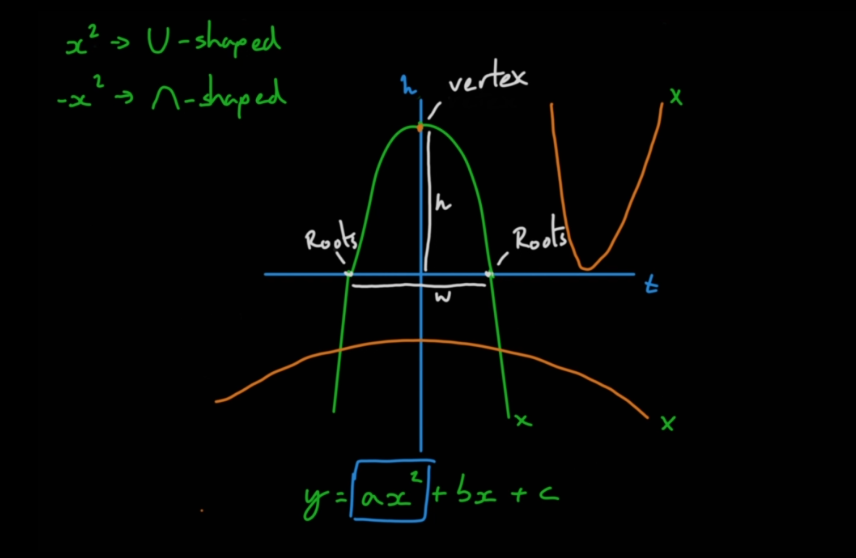 x² → U-shaped
-x² → ∩-shaped
h
vertex
x
h
Roots
Roots
t
w
x
x
y = ax² + bx + c